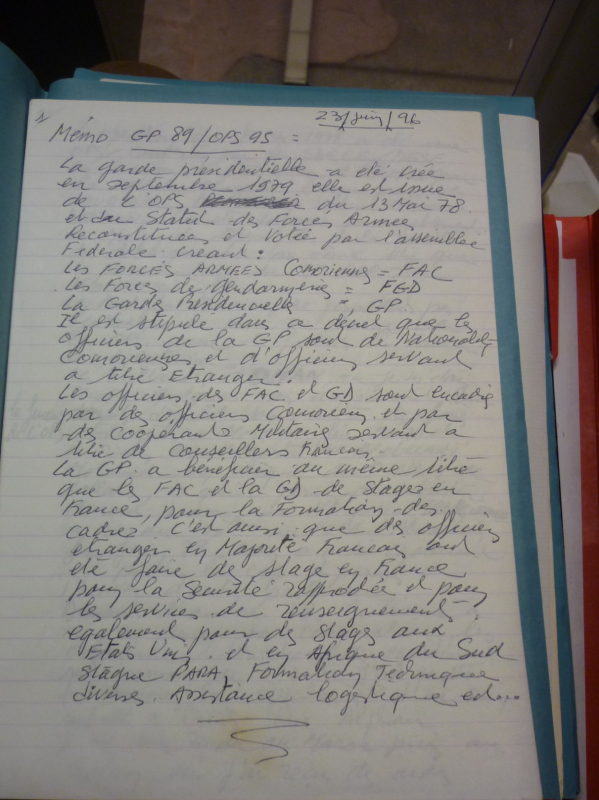 23/juin/96
Mémo GP 89/OPS 95 =
La garde présidentielle a été créé
en septembre 1979 elle est issue
de l'OPS du 13 Mai 78
et du Statut des Forces Armées
Reconstituées et Votée par l'assemblée
Fédérale créant :
Les FORCES ARMEES Comoriennes = FAC
Les Forces de gendarmerie = FGD
La Garde Présidentielle = GP
Il est stipulé dans ce décret que les
officiers de la GP sont de Nationalité
Comoriennes et d'officiers servant
a titre Etranger.
Les officiers des FAC et GD sont encadrés
par des officiers Comoriens et par
des coopérants Militaires servant a
titre de Conseillers Français.
La GP a bénéficier au même titre
que les FAC et la GD de stages en
France, pour la Formation des
cadres. C'est ainsi que des officiers
etranger en Majorité Français ont
été faire de stage en France
pour la sécurité rapprochée et pour
les services de renseignements.
également pour des stages aux
Etats Unis et en Afrique du Sud
Stage PARA, Formation Technique
diverses. Assistance logistique ect...